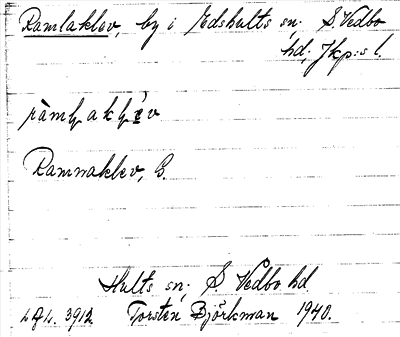 Ramlaklev, by i Edshults sn. S. Vedbo
hd; Jkp:s l.
ràmḷakḷèv
Ramnaklev, E.
Hults sn. S. Vedbo hd.
3912 Torsten Björkman 1940.